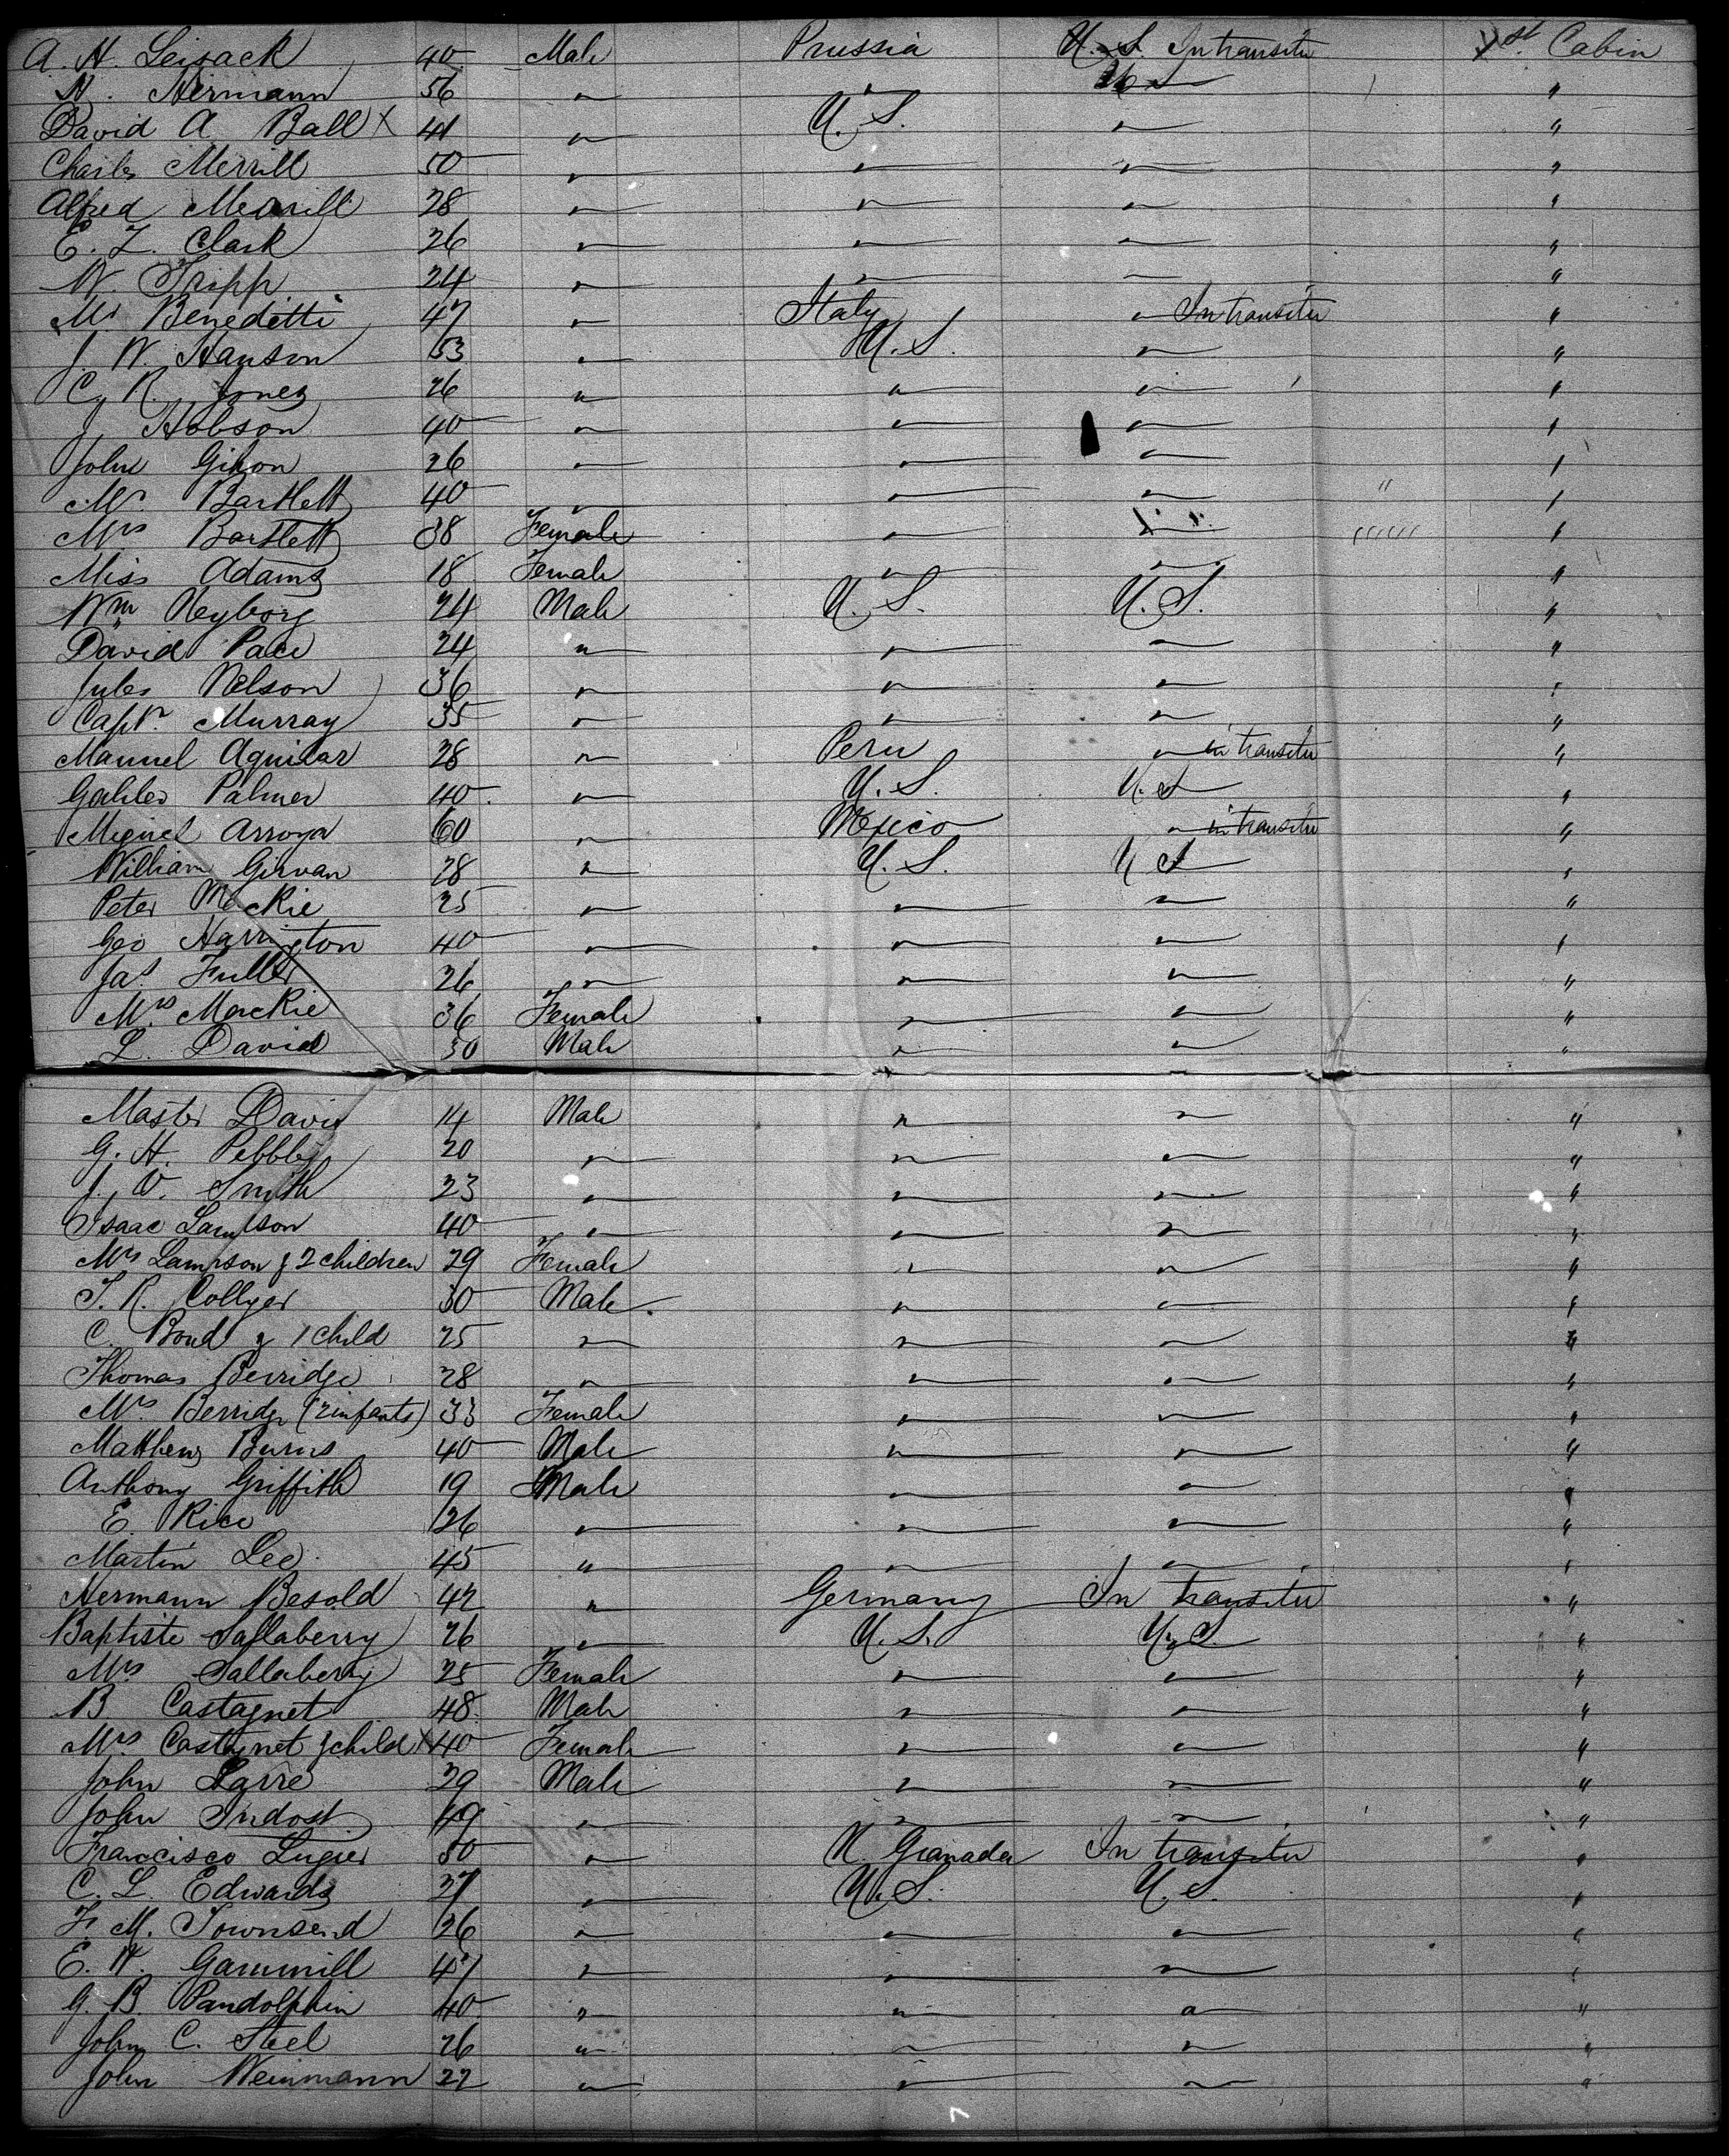 A. H. Leisack 40 Male Prussia U. S. In transitu 1st Cabin
N. Hermann 56 " " U S "
David A. Ball X 41 " U. S. " "
Charles Merrill 50 " " " "
Alfred Merrill 28 " " " "
E. L. Clark 26 " " " "
W. Tripp 24 " " " "
Mr Benedetti 47 " Italy " In transitu "
J. W. Hanson 53 " U. S. " "
C. R. Jones 26 " " " "
J Hobson 40 " " " "
John Gihon 26 " " " "
Mr. Bartlett 40 " " " "
Mrs Bartlett 38 Female " " "
Miss Adams 18 Female " " "
Wm Heyborg 24 Male U. S. U. S. "
David Pace 24 " " " "
Jules Nelson 36 " " " "
Captn. Murray 35 " " " "
Manuel Aguilar 28 " Peru " in transitu "
Palmer 40 " U. S. U. S "
Miguel Arroya 60 " Mexico " in transitu "
William Girvan 28 " U. S. U S "
Peter Mackie 25 " " " "
Geo Harrington 40 " " " "
Jas Fuller 26 " " " "
Mrs. Mackie 36 Female " " "
L. David 30 Male " " "
Master David 14 Male " " "
G. H. Pebbles 20 " " " "
J. V. Smith 23 " " " "
Isaac Lampson 40 " " " "
Mrs Lampson & 2 children 29 Female " " "
T. R. Collyer 30 Male " " "
C. Bond & 1 child 25 " " " "
Thomas Berridge 28 " " " "
Mrs. Berridge (2 infants) 33 Female " " "
Matthew Burns 40 Male " " "
Anthony Griffith 19 Male " " "
E. Rice 26 " " " "
Martin Lee 45 " " " "
Hermann Besold 42 " Germany In transitu "
Baptiste Sallaberry 26 " U. S. U. S. "
Mrs Sallaberry 25 Female " " "
B Castagnet 48 Male " " "
Mrs. Castagnet & child X 40 Female " " "
John Larre 29 Male " " "
John Indost 49 " " " "
Francisco Lugier 50 " N. Granada In transitu "
C. L. Edwards 37 " U. S. U. S. "
F. M. Townsend 26 " " " "
E. W. Gammill 47 " " " "
G. B. Pandolphin 40 " " " "
John C. Steel 26 " " " "
John Weinmann 22 " " " "